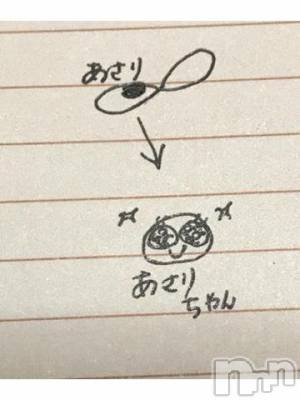 あさり
あさり
ちゃん